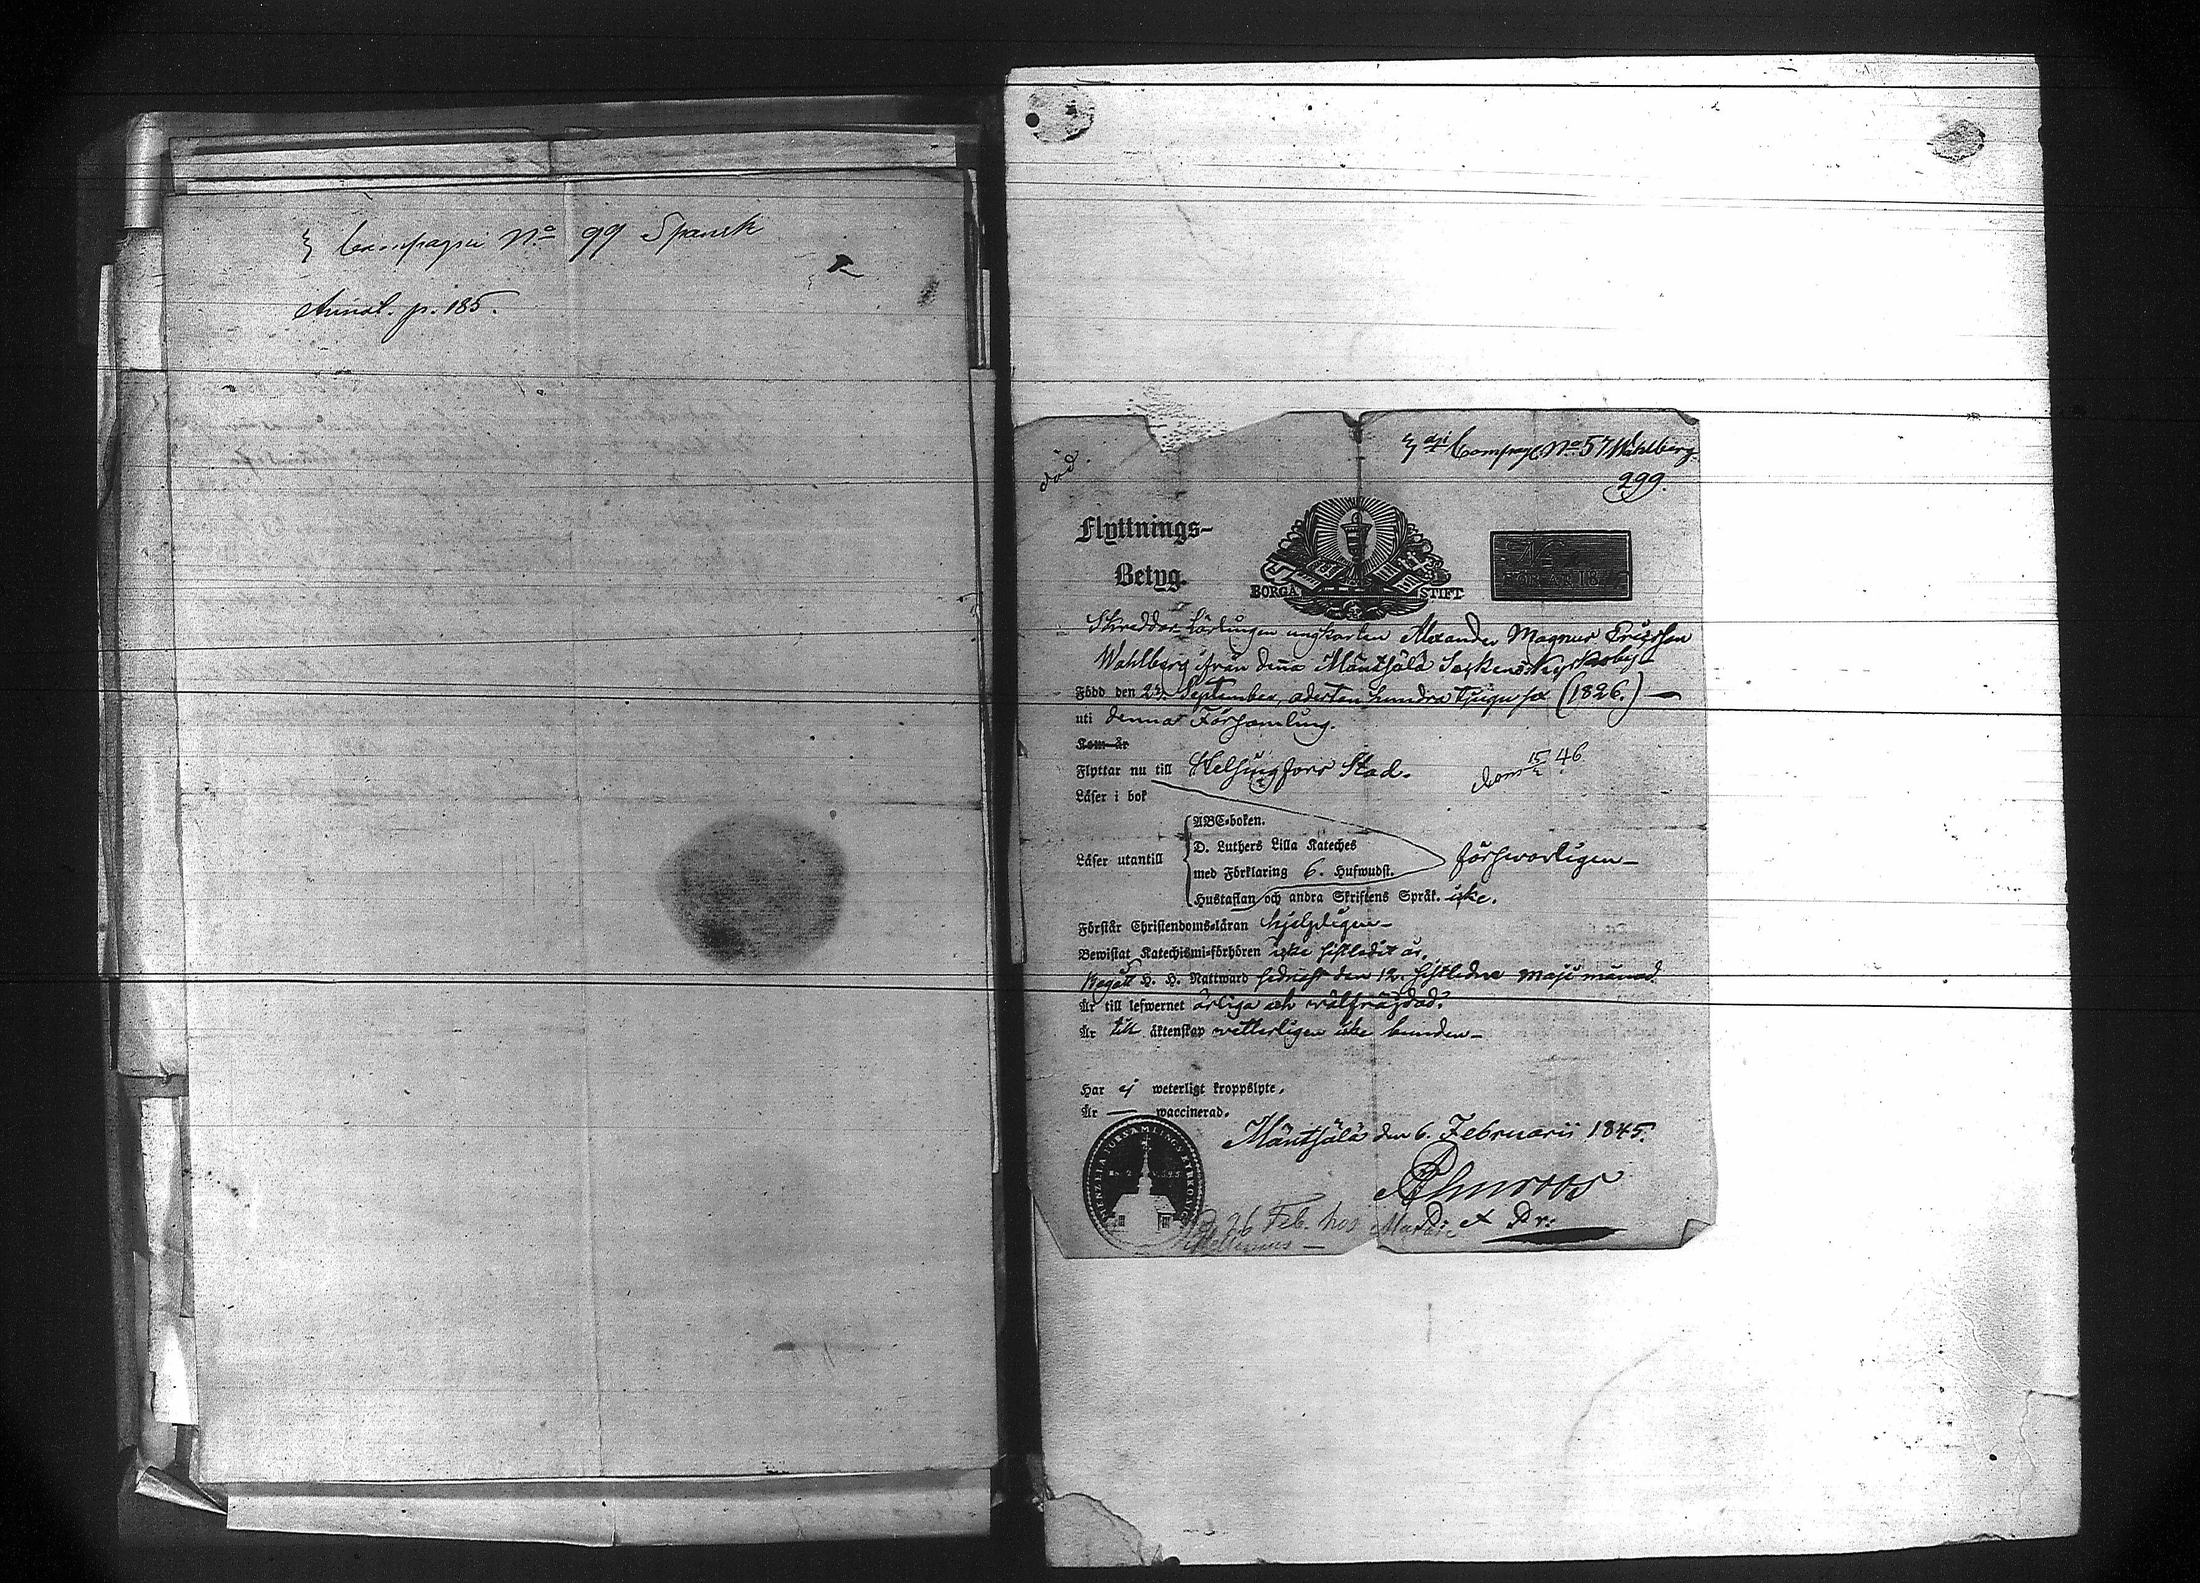 Compagni No 99 Spansk
p. 185.
död
Compag. No 57 Wahlberg
299.
Flyttnings-
Betyg.
BORGÅ STIFT
FÖR ÅR 18
Skreddar Lärlingen ungkarlen Alexander Magnus Ericsson
Wahlberg ifrån denna Mäntsälä Sockens Kyrkoby
Född den 24 September, aderton hundra tjugu sex (1826.) —
uti denna Församling.
Kom år
Flyttar nu till Helsingfors Stad.
Dom 15/2 46.
Läser i bok
Läser utantill
ABC-boken.
D. Luthers Lilla Kateches
med Förklaring 6. Hufwudst.
Hustaflan och andra Skriftens Språk. icke.
försvarligen —
Förstår Christendoms-läran hjelpligen —
Bewistat Katechismi-förhören icke sistledit år.
Begått H. H. Nattward sednast den 12. sistledne Maji månad.
Är till lefwernet ärliga och wälfrägdad.
Är till äktenskap wetterligen icke bunden —
Har ej weterligt kroppslyte.
Är — waccinerad.
Mäntsälä den 6. Februarii 1845.
FÖRSAMLINGS KYRKO
26 Feb. hos